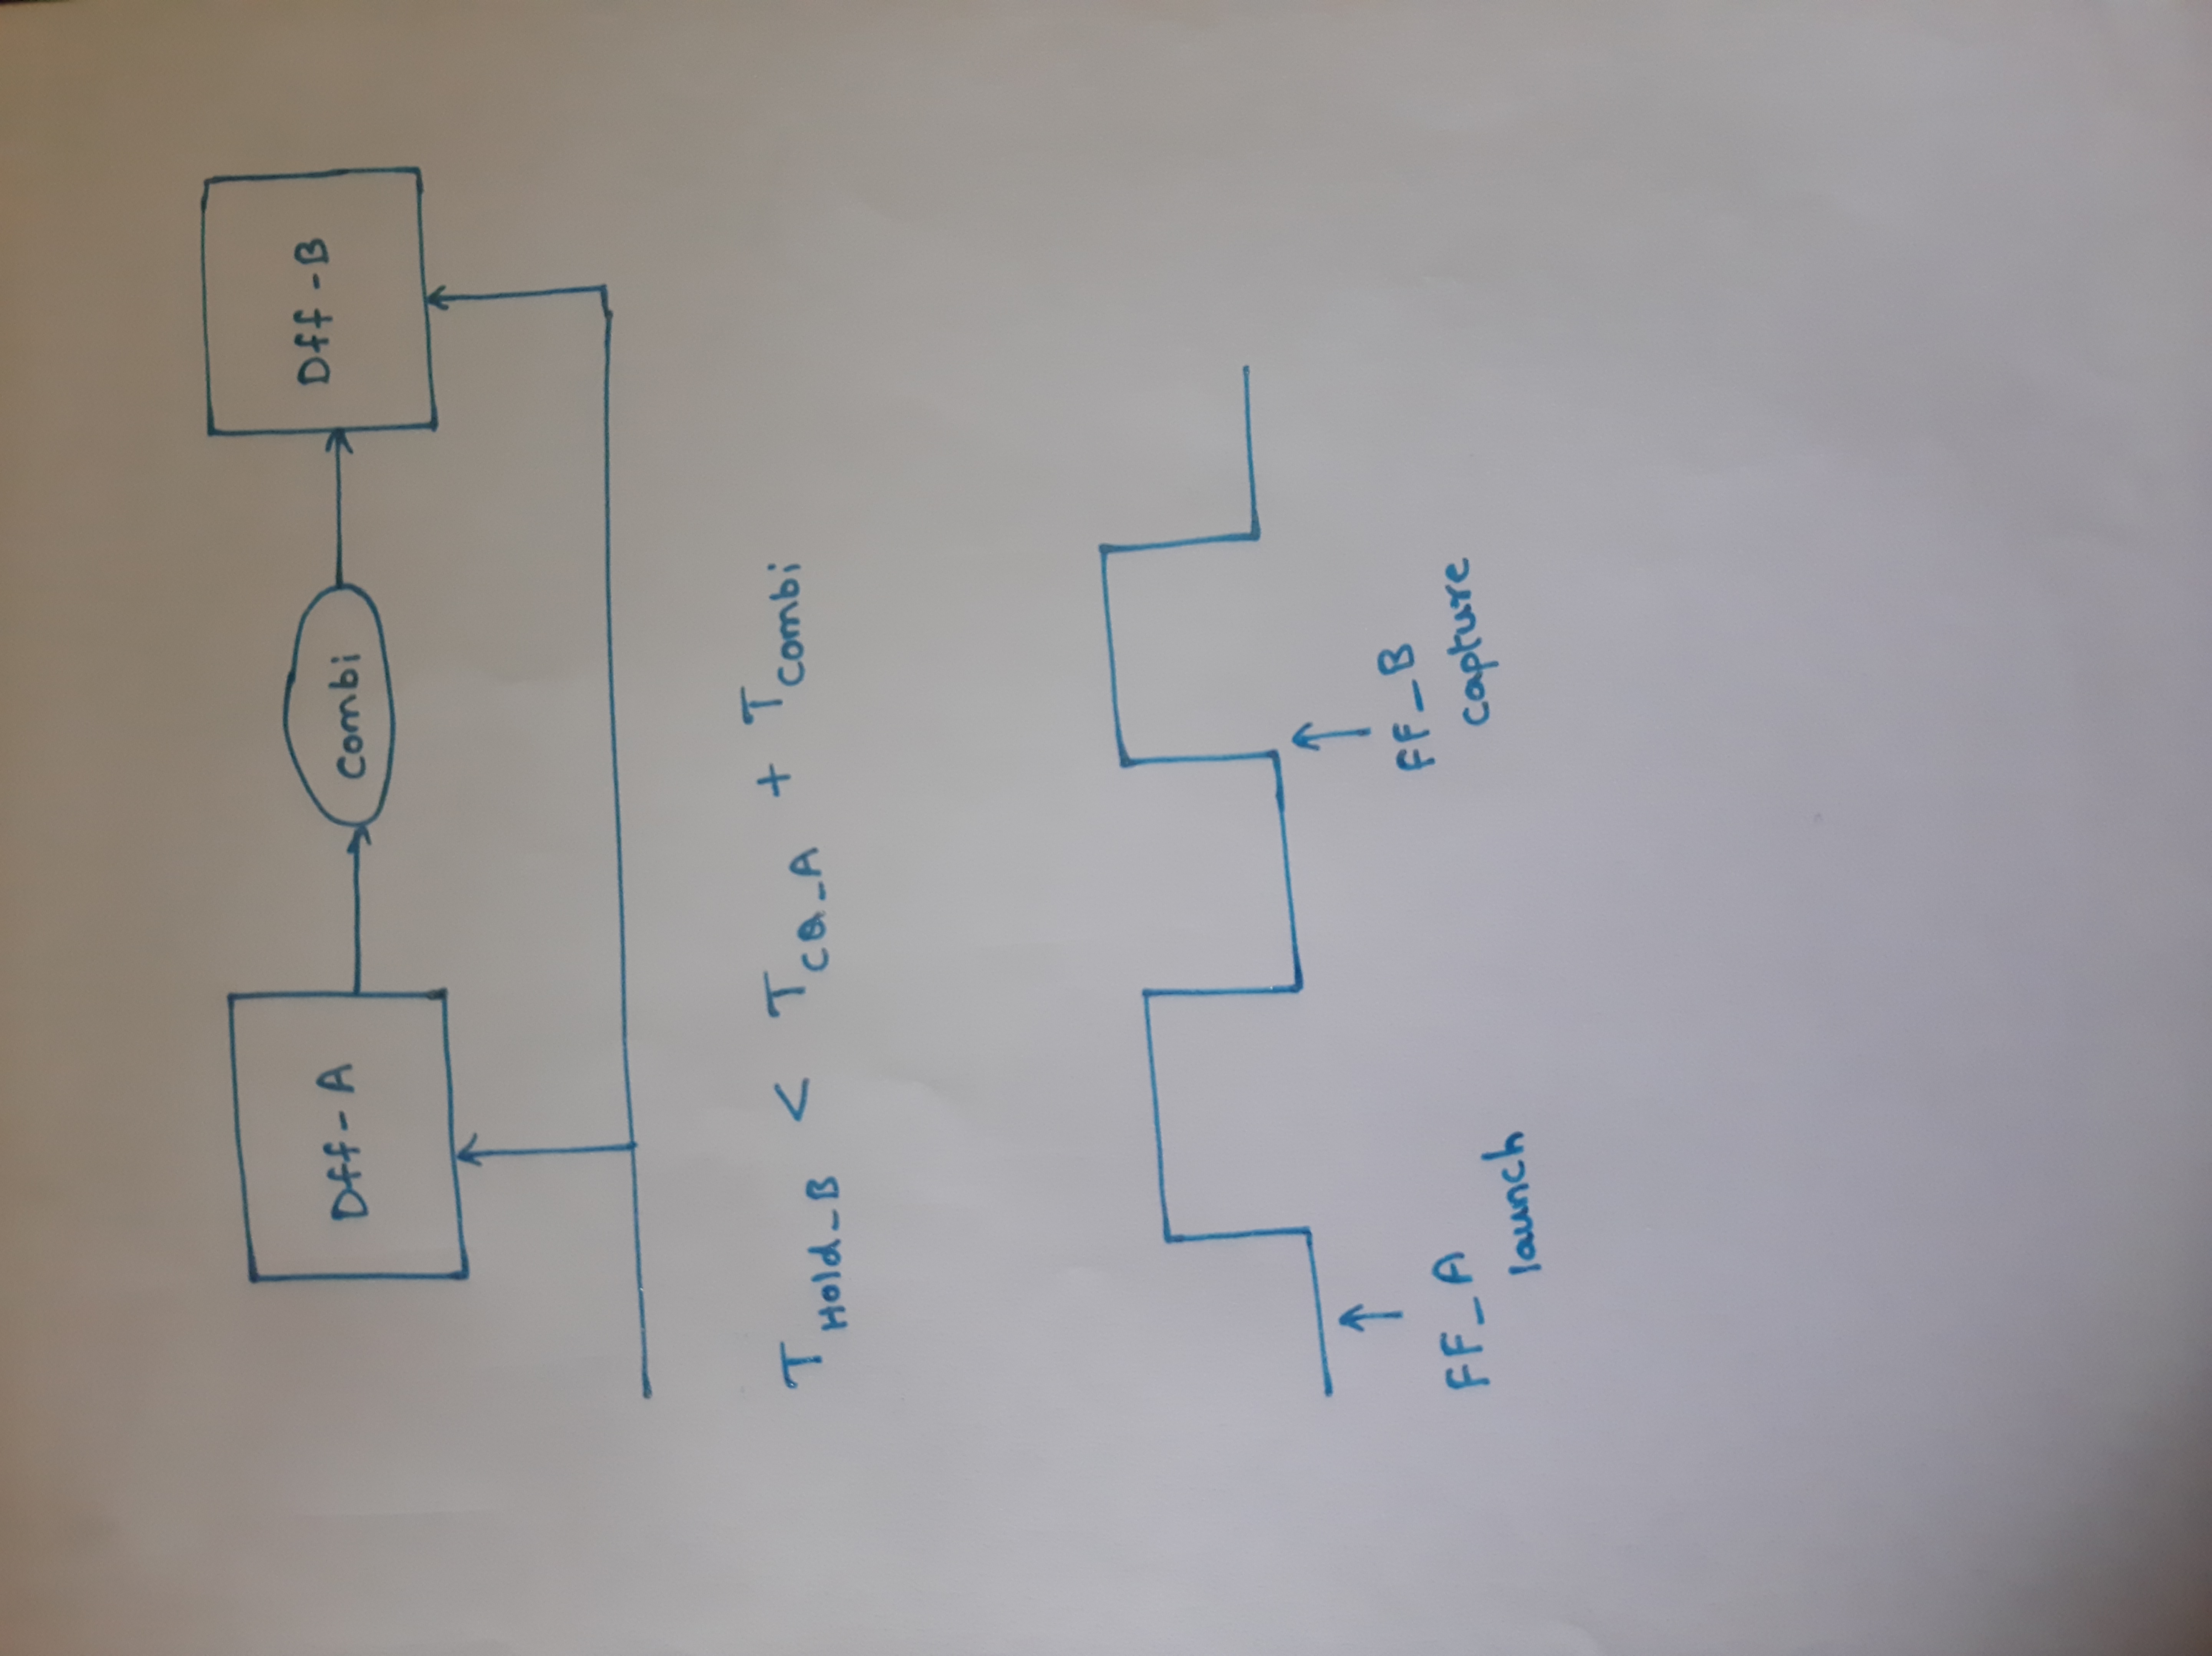 Dff-A
Combi
Dff-B
T Hold_B < T CQ_A + T Combi
FF_A
launch
FF_B
capture